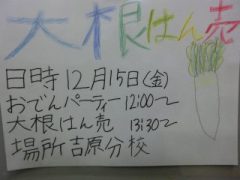 大根はん売
日時12月15日(金)
おでんパーティー12:00～
大根はん売 13:30～
場所吉原分校